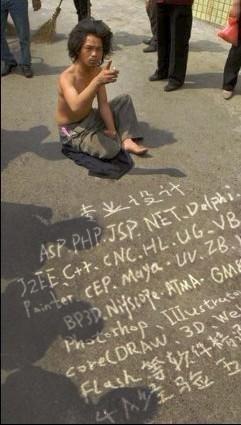 专业设计
ASP.PHP.JSP.NET.Delphi
J2EE.C++.CNC.HL.UG-VB
Painter.CEP.Maya UV.ZB.
BP3D.Nifslope.ATMA.GMB
Photoshop、Illustrato
corelDRAW、3D.We
Flash 等软件精
4年 经验 五